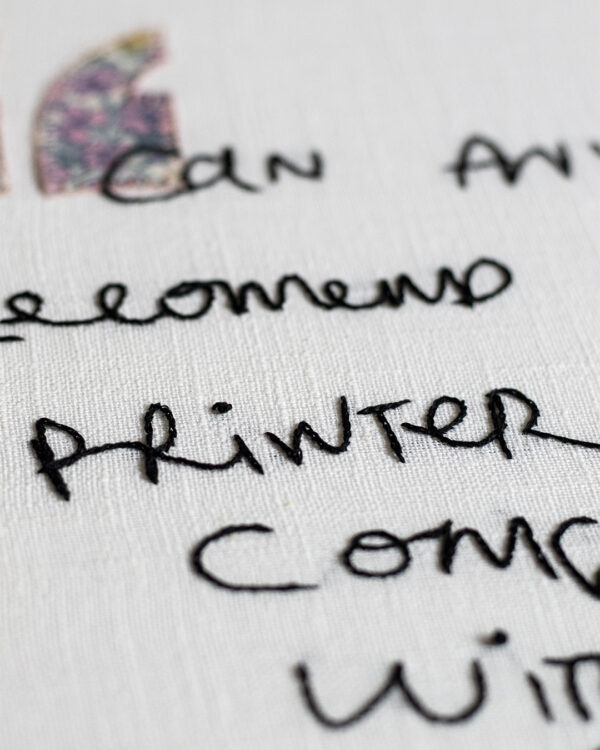 Can
recomend
PRiNTER
COM
WiT